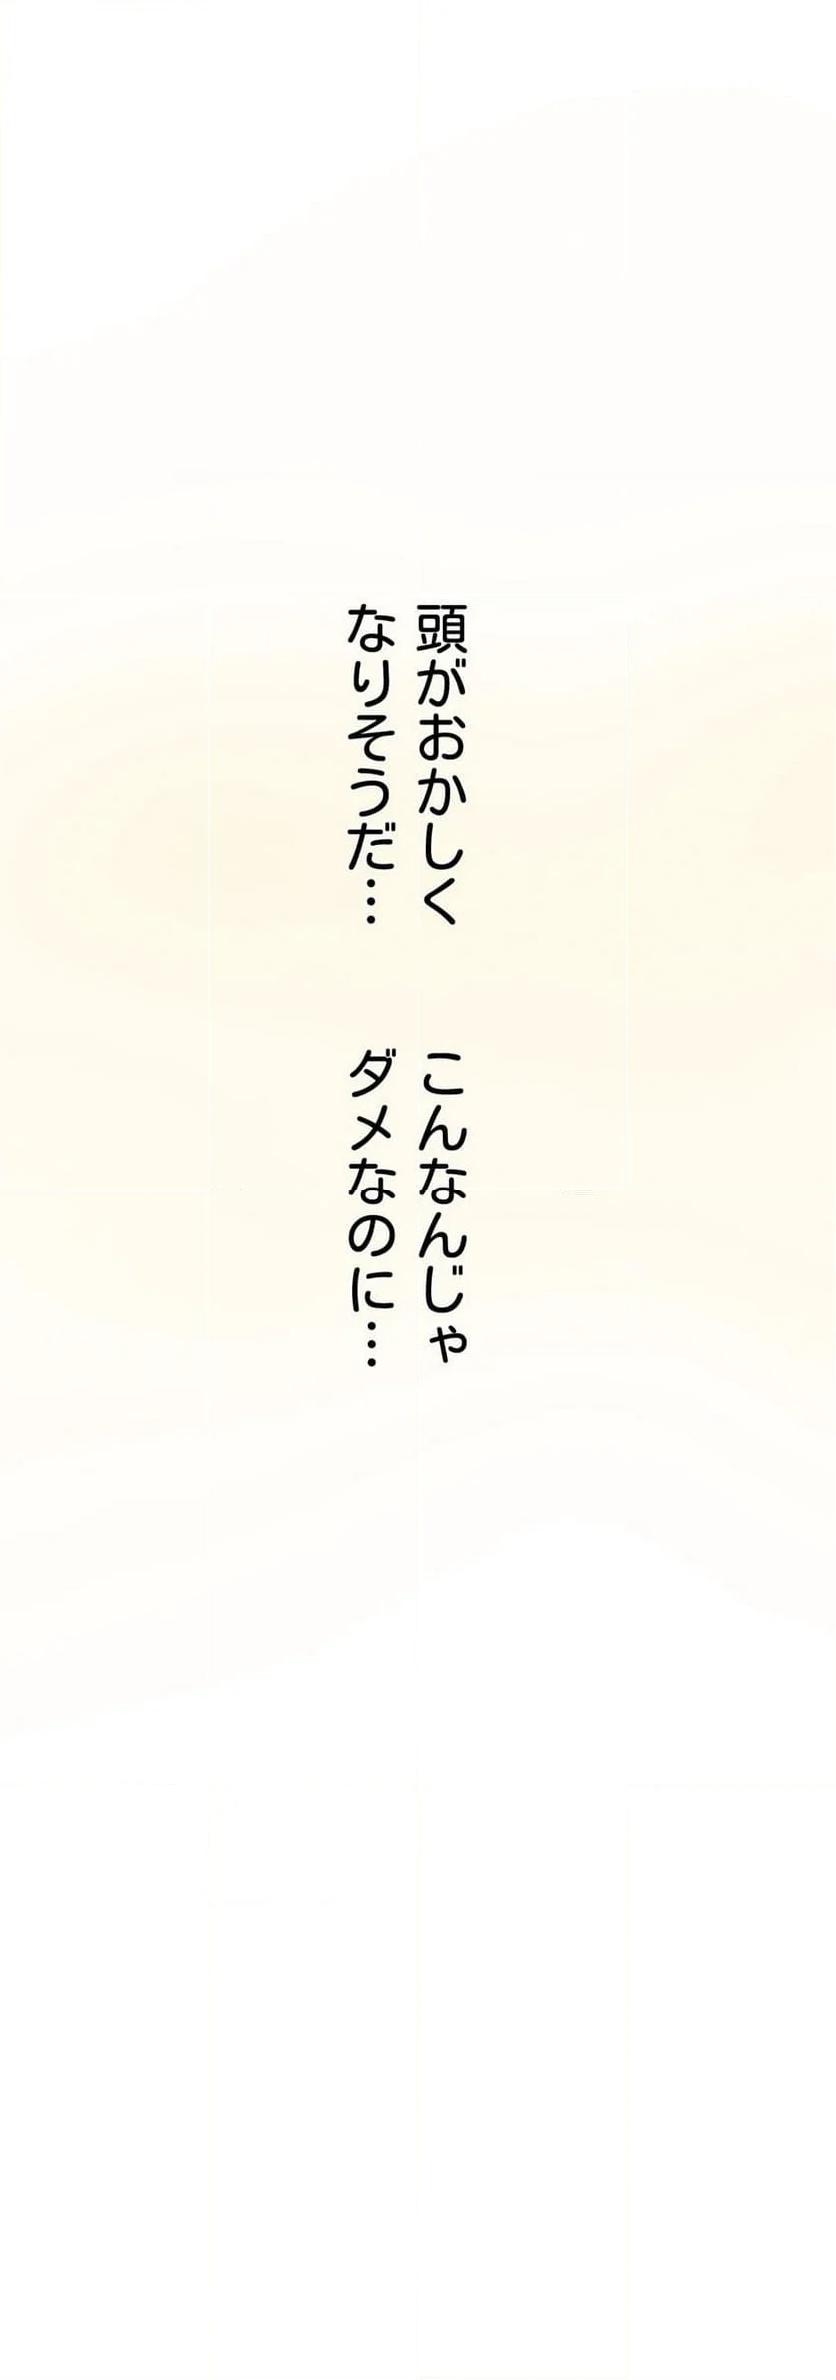 頭がおかしく
なりそうだ…
こんなんじゃ
ダメなのに…